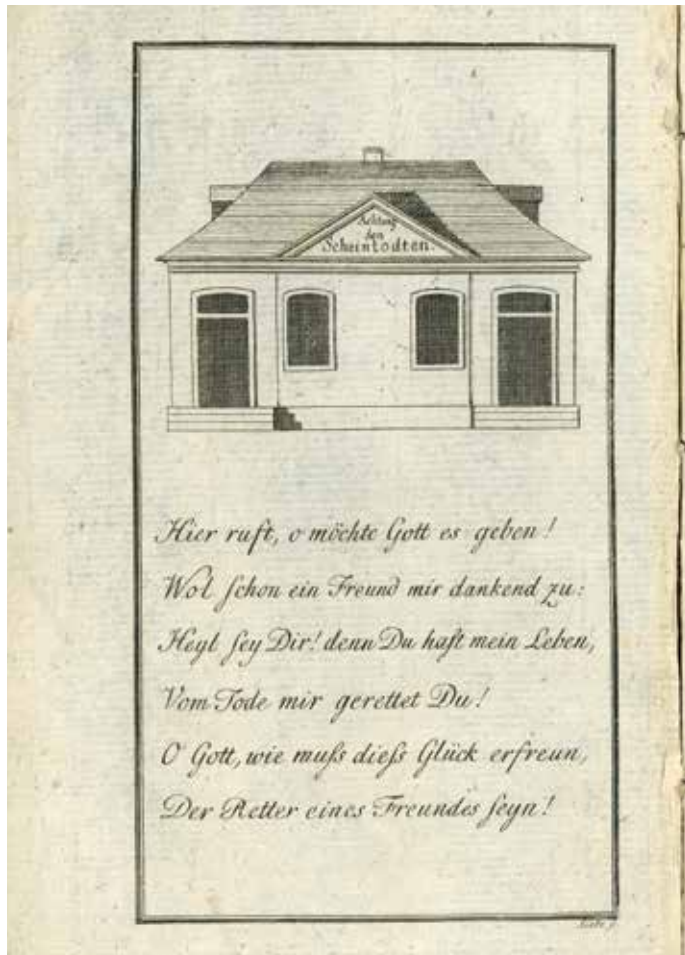 Achtung
den
Scheintodten.
Hier ruft, o möchte Gott es geben!
Wol ſchon ein Freund mir dankend zu:
Heyl ſey Dir! denn Du haſt mein Leben,
Vom Tode mir gerettet Du!
O Gott, wie muſs dieſs Glück erfreun,
Der Retter eines Freundes ſeyn!